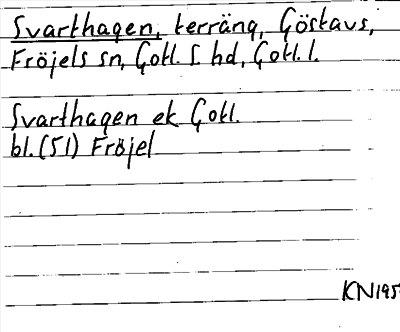 Svarthagen, terräng, Göstavs,
Fröjels sn, Gotl. S. hd, Gotl. l.
Svarthagen ek Gotl.
bl. (51) Fröjel
KN195